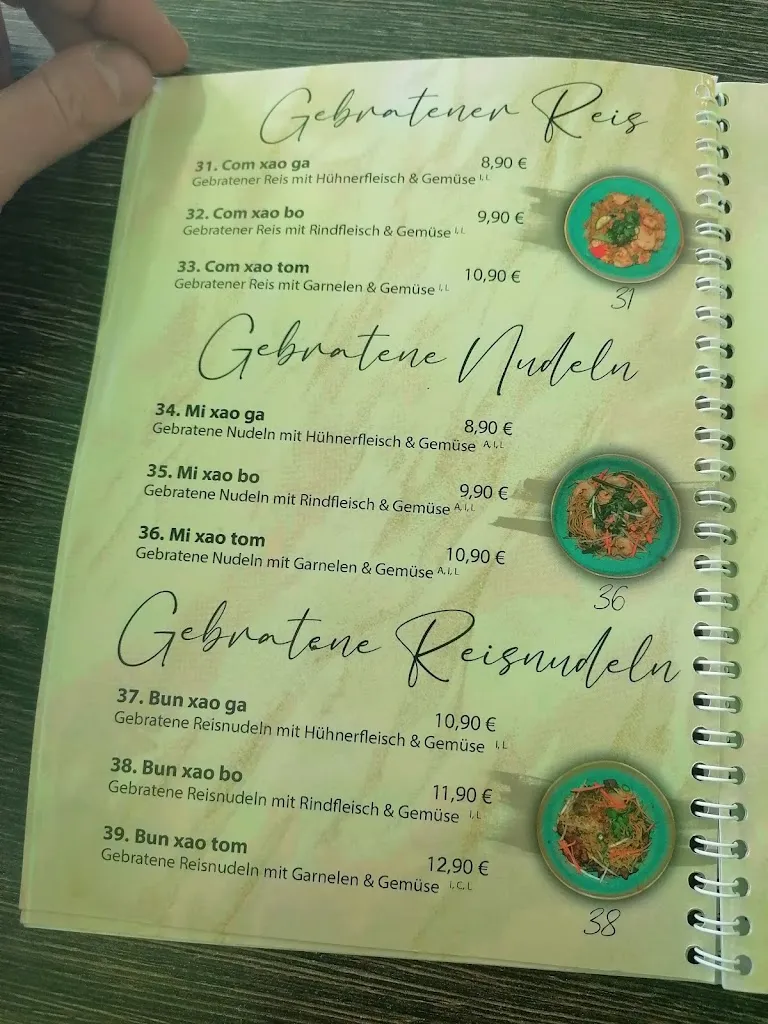 Gebratener Reis
31. Com xao ga 8,90 €
Gebratener Reis mit Hühnerfleisch & Gemüse I, L
32. Com xao bo 9,90 €
Gebratener Reis mit Rindfleisch & Gemüse I, L
33. Com xao tom 10,90 €
Gebratener Reis mit Garnelen & Gemüse I, L
31
Gebratene Nudeln
34. Mi xao ga 8,90 €
Gebratene Nudeln mit Hühnerfleisch & Gemüse A, I, L
35. Mi xao bo 9,90 €
Gebratene Nudeln mit Rindfleisch & Gemüse A, I, L
36. Mi xao tom 10,90 €
Gebratene Nudeln mit Garnelen & Gemüse A, I, L
36
Gebratene Reisnudeln
37. Bun xao ga 10,90 €
Gebratene Reisnudeln mit Hühnerfleisch & Gemüse I, L
38. Bun xao bo 11,90 €
Gebratene Reisnudeln mit Rindfleisch & Gemüse I, L
39. Bun xao tom 12,90 €
Gebratene Reisnudeln mit Garnelen & Gemüse I, C, L
38